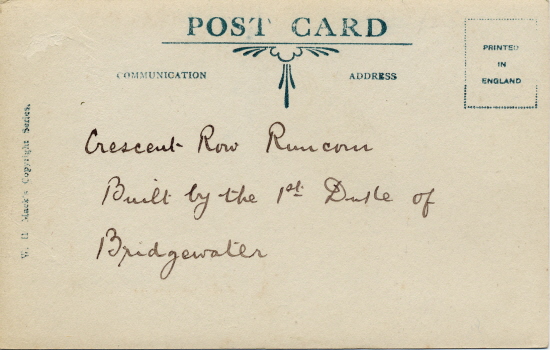 POST CARD
COMMUNICATION
ADDRESS
PRINTED
IN
ENGLAND
Crescent Row Runcorn
Built by the 1st Duke of
Bridgewater
Mack's Copyright Series.